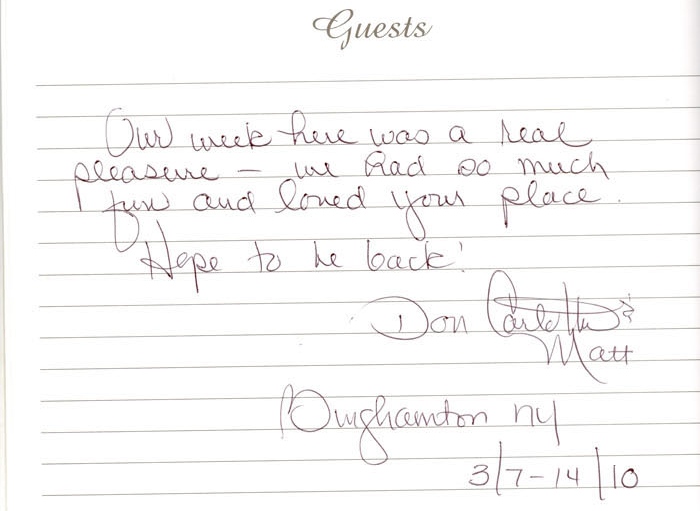 Guests
Our week here was a real
pleasure – we had so much
fun and loved your place.
Hope to be back!
Don Carlotta &
Matt
Binghamton NY
3/7-14/10